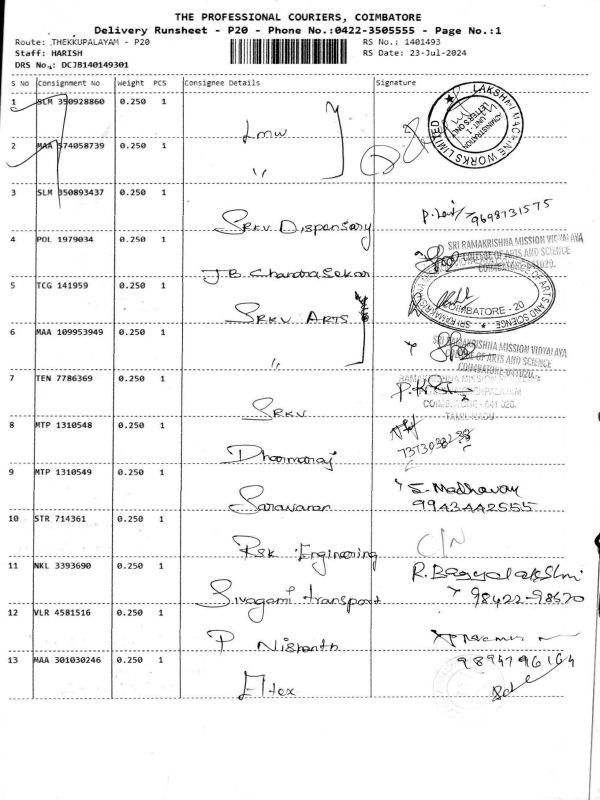 THE PROFESSIONAL COURIERS, COIMBATORE
Delivery Runsheet - P20 - Phone No.:0422-3505555 - Page No.:1
Route: THEKKUPALAYAM - P20 RS No.: 1401493
Staff: HARISH RS Date: 23-Jul-2024
DRS No.: DCJB140149301
S No Consignment No Weight PCS Consignee Details Signature
1 SLM 350928860 0.250 1
LAKSHMI MACHINE WORKS LIMITED
ADMINISTRATION UNIT-1
LETTERS ONLY
Lmw
2 MAA 574058739 0.250 1
"
3 SLM 350893437 0.250 1
9698731575
SRKV Dispensary
4 POL 1979034 0.250 1
SRI RAMAKRISHNA MISSION VIDYALAYA
COLLEGE OF ARTS AND SCIENCE
COIMBATORE-641020.
J.B. Chandra Sekar
5 TCG 141959 0.250 1
COIMBATORE - 20
SRKV ARTS
6 MAA 109953949 0.250 1
"
SRI RAMAKRISHNA MISSION VIDYALAYA
COLLEGE OF ARTS AND SCIENCE
COIMBATORE-641020.
7 TEN 7786369 0.250 1
RAMAKRISHNA MISSION
COIMBATORE - 641 020.
TAMIL NADU
SRKV
8 MTP 1310548 0.250 1
Dharmaraj
9 MTP 1310549 0.250 1
S. Madhavan
9943442555
Saravanan
10 STR 714361 0.250 1
C/N
RSK Engineering
11 NKL 3393690 0.250 1
R. Bagyalakshmi
98422-98620
Sivagami transport
12 VLR 4581516 0.250 1
P Nishanth
13 MAA 301030246 0.250 1
9894796164
Eltex